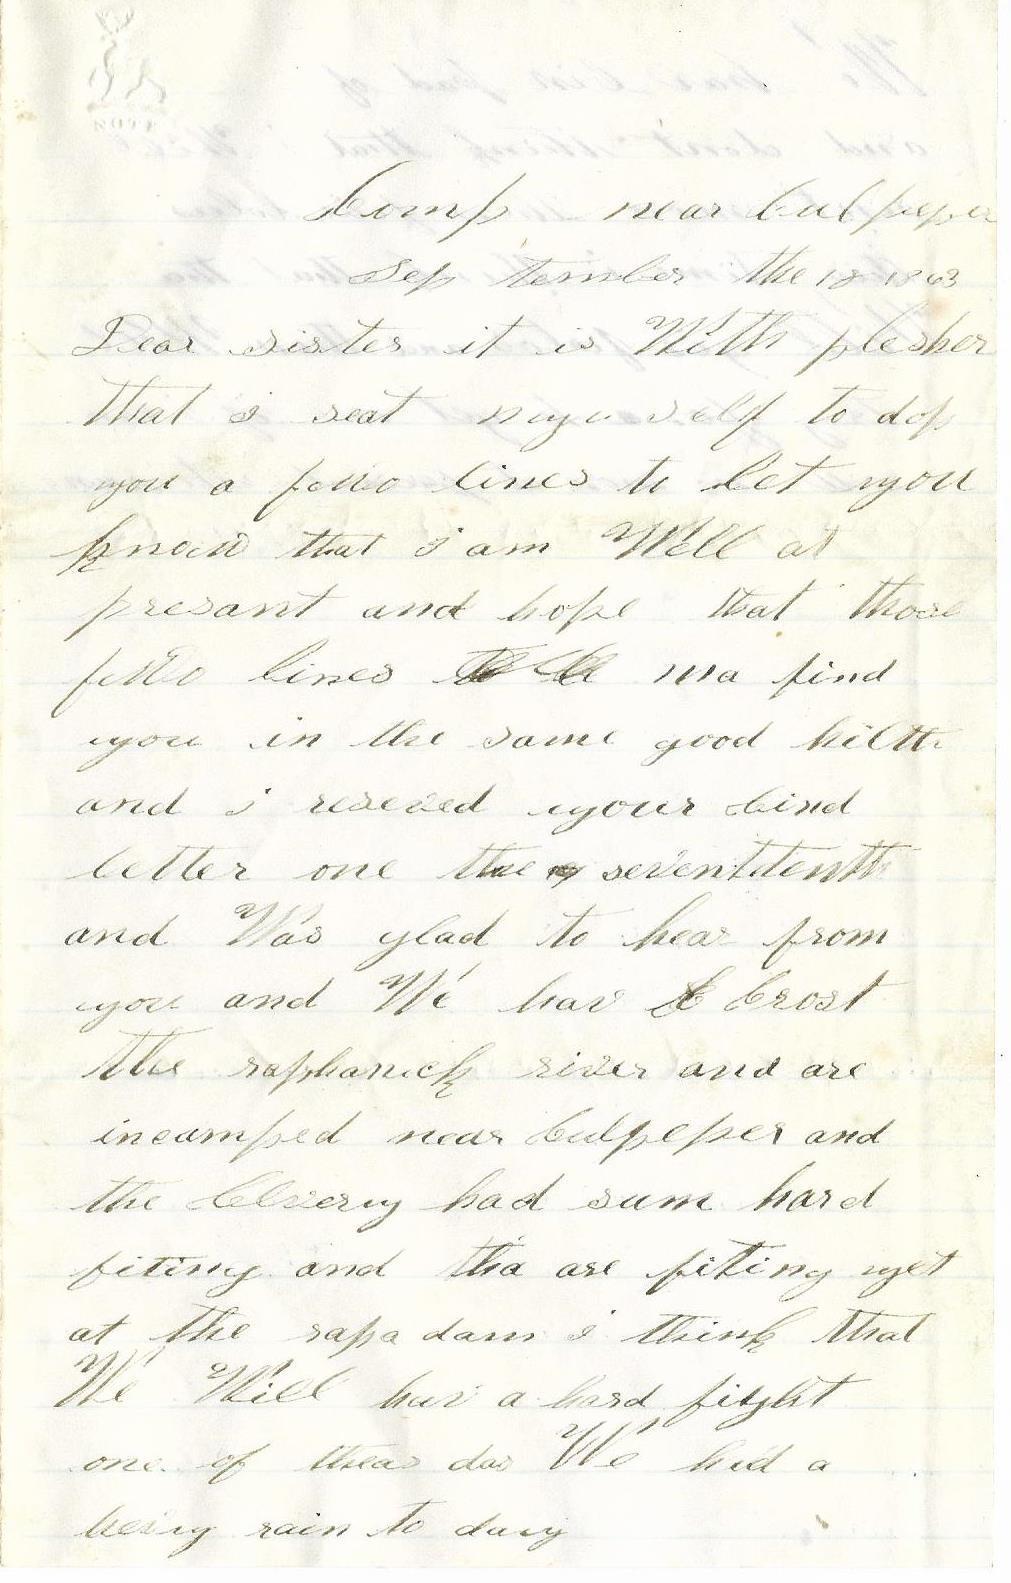 Camp near Culpeper
September the 18 1863
Dear sister it is With plesher
that i seat myu self to dop
you a fuwo lines to let you
know that i am Well at
presant and hope that those
fuwo lines ma find
you in the same good hilth
and i reseved your kind
letter one the seventtenth
and Was glad to hear from
you and We hav Crost
the raphanick river and are
incamped near Culpeper and
the Clvery had sum hard
fiting and tha are fiting yet
at the rapa dam i think that
We Will hav a hard fitght
one of theas das We had a
hevey rain to day